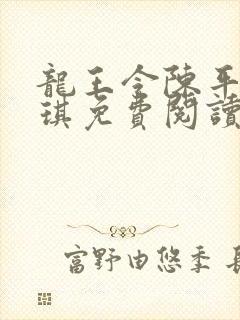 龍王令陳平
琪免費閱讀
富野由悠季